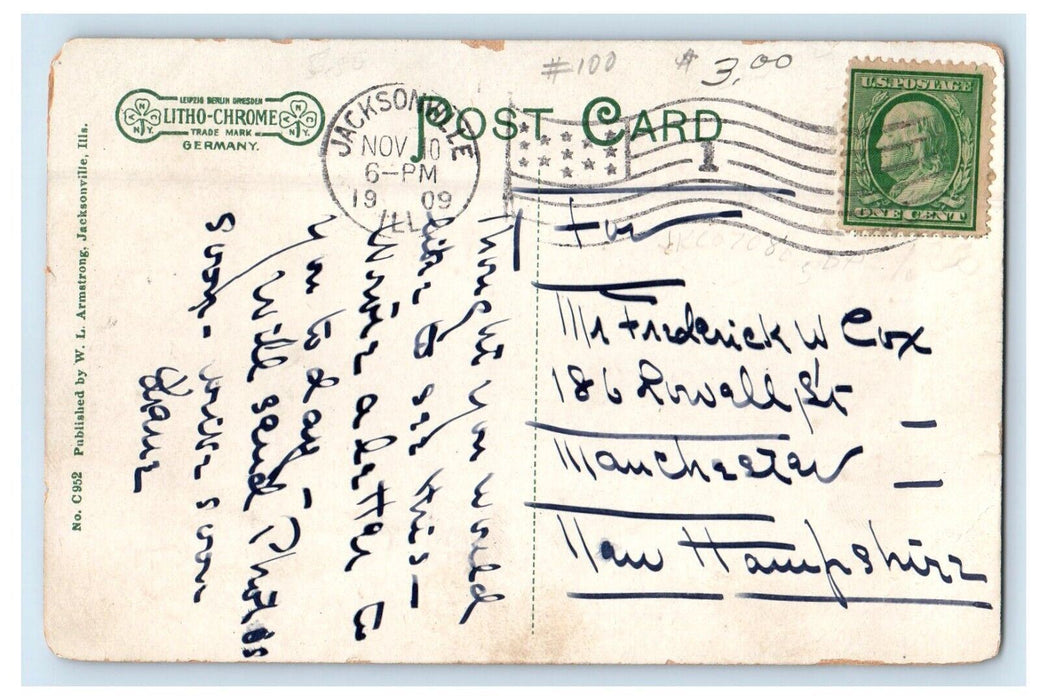 #100 $ 3.00
LEIPZIG BERLIN DRESDEN
LITHO-CHROME
TRADE MARK
GERMANY.
N Y N Y
POST CARD
JACKSONVILLE
NOV 10
6-PM
1909
ILL.
1
U.S. POSTAGE
ONE CENT
No. C 952 Published by W. L. Armstrong, Jacksonville, Ills.
Thought you would
like to see this —
Write a letter to
you to day —
Will send Photos
soon
For
Mr Frederick W Cox
186 Lowell St —
Manchester —
New Hampshire